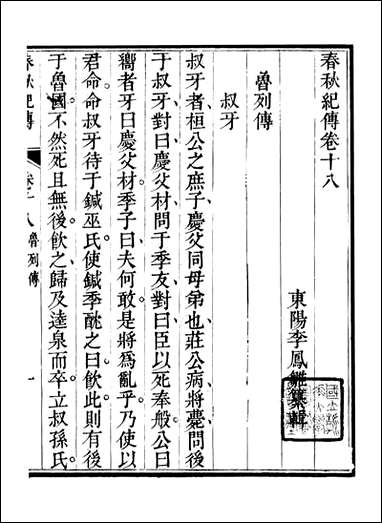 春秋紀傳卷十八
東陽李鳳雛纂輯
魯列傳
叔牙
叔牙者桓公之庶子慶父同母弟也莊公病將薨問後
于叔牙對曰慶父材問于季友對曰臣以死奉般公曰
嚮者牙曰慶父材季子曰夫何敢是將爲亂乎乃使以
君命命叔牙待于鍼巫氏使鍼季酖之曰飲此則有後
于魯國不然死且無後飲之歸及逵泉而卒立叔孫氏
春秋紀傳
魯列傳
一